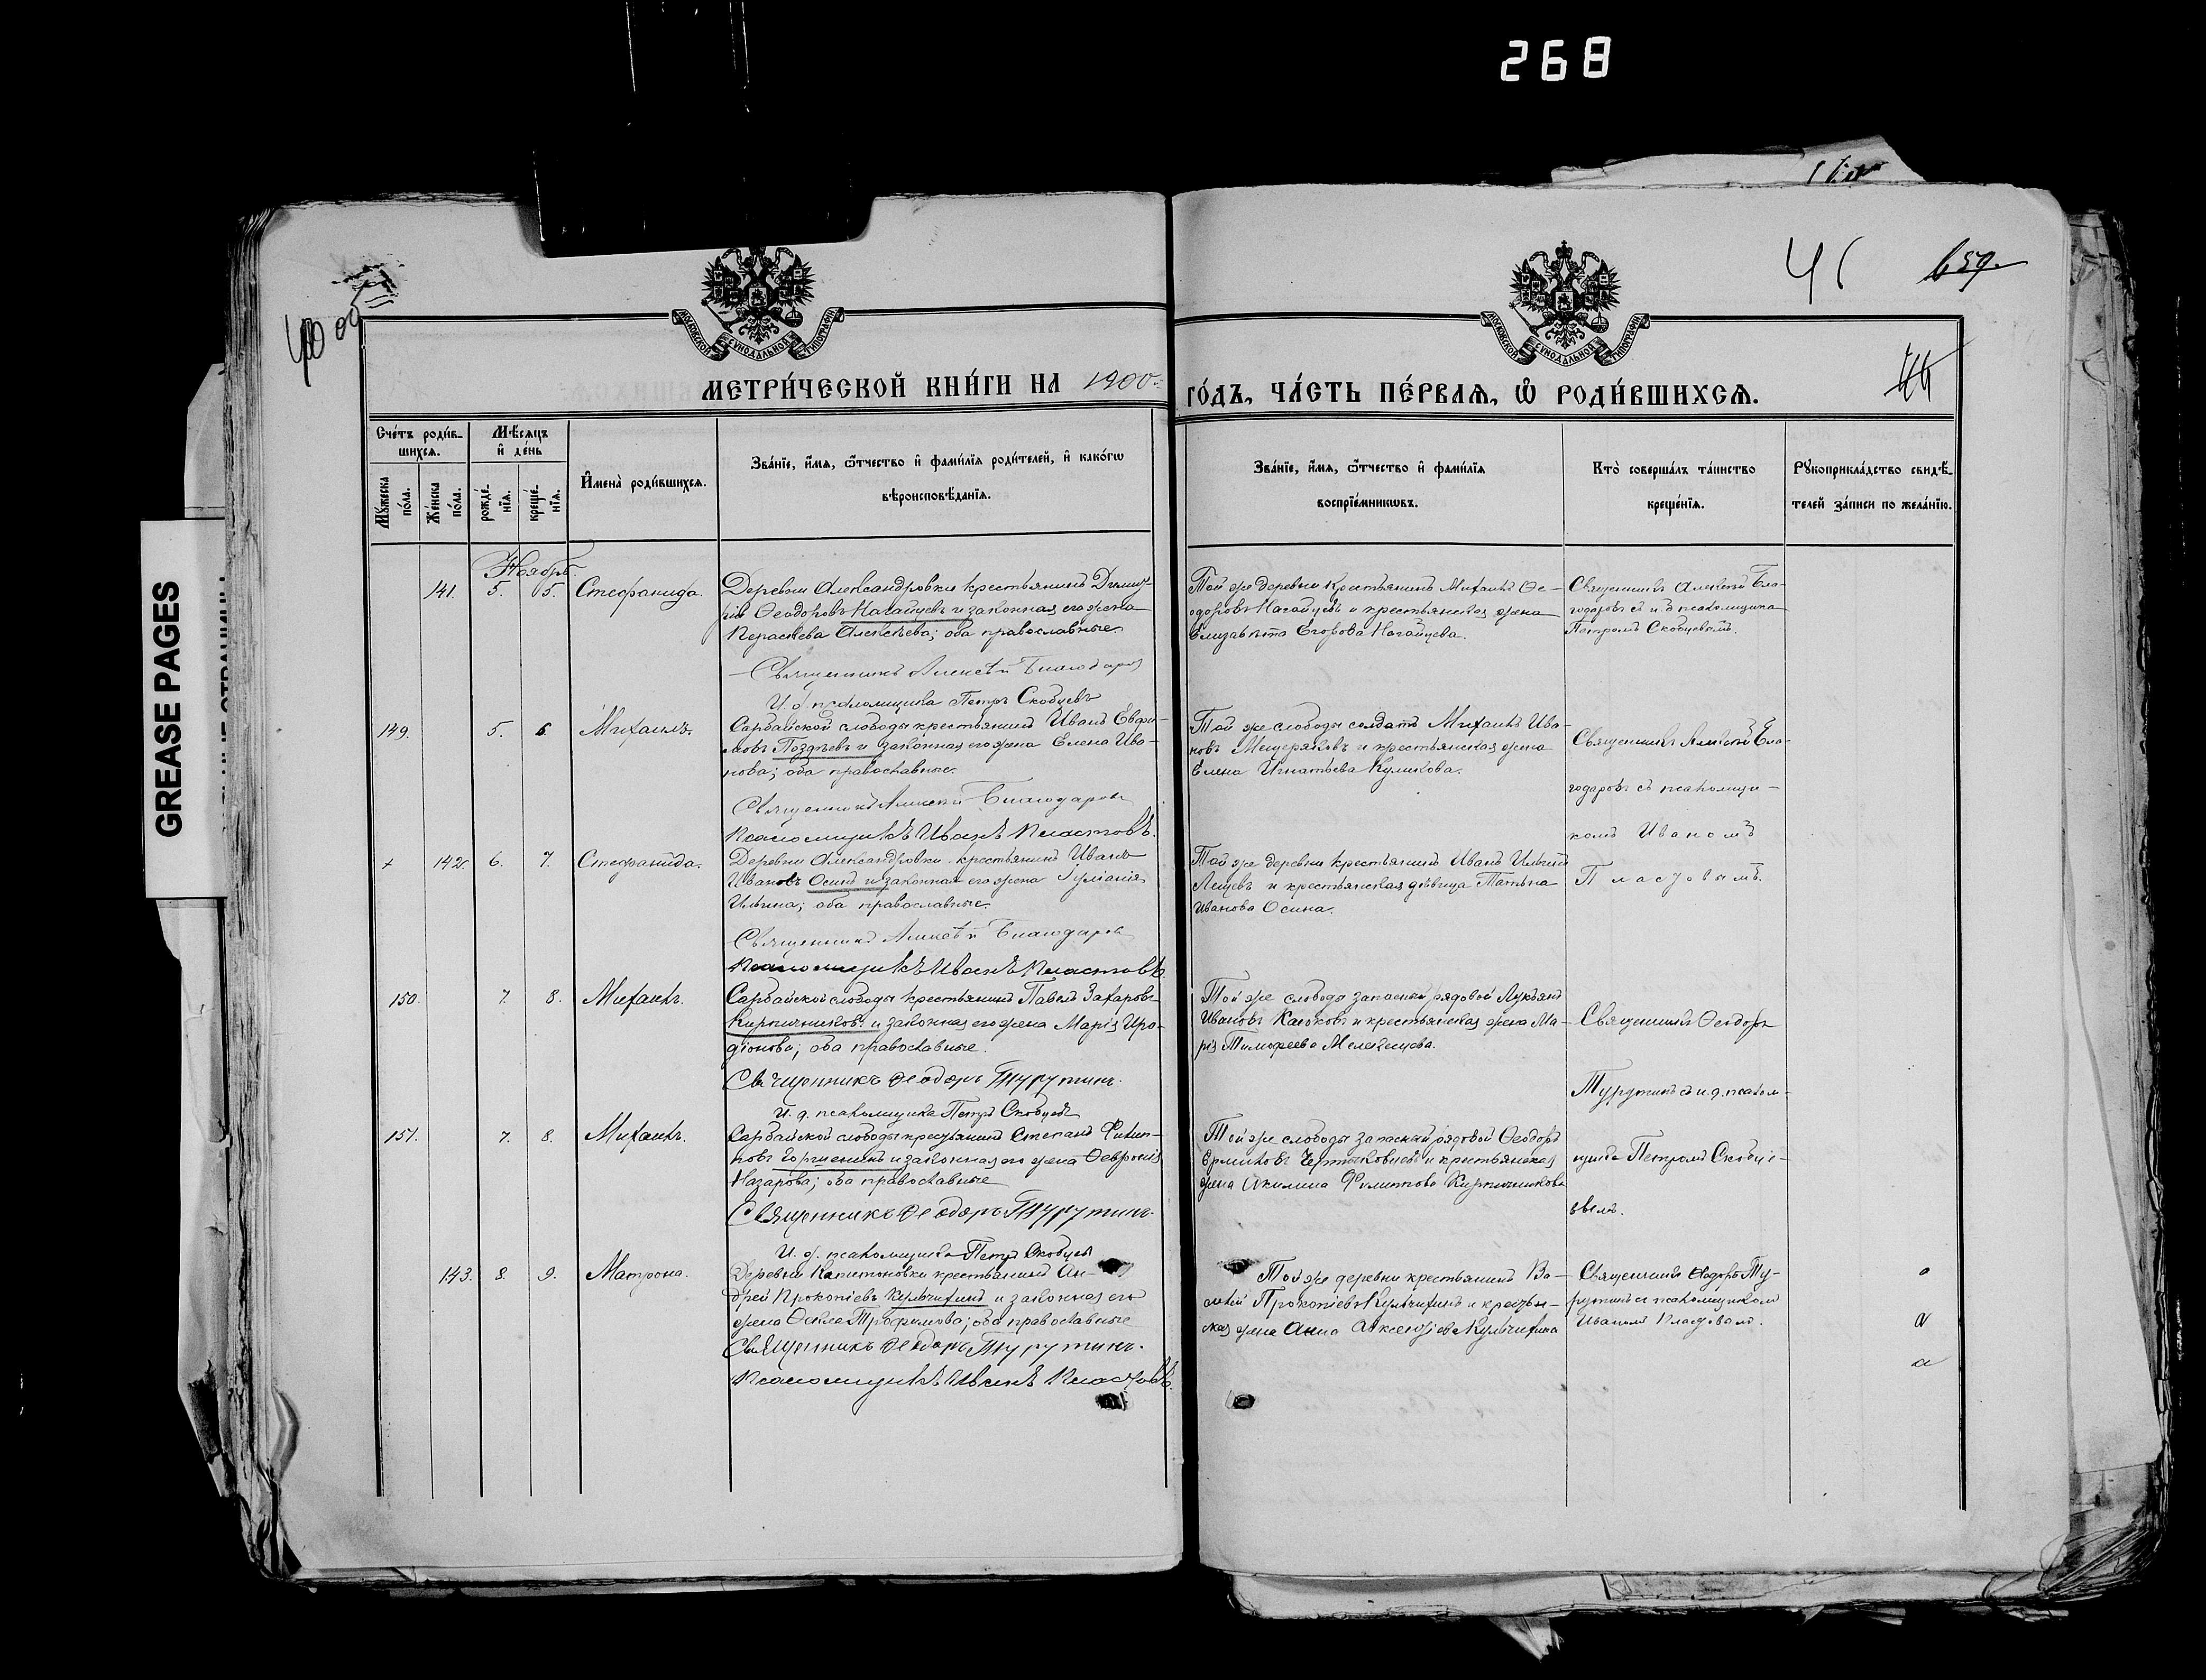 268
659.
GREASE PAGES
МОСКОВСКОЙ СѴНОДАЛЬНОЙ ТИПОГРАФІИ
МОСКОВСКОЙ СѴНОДАЛЬНОЙ ТИПОГРАФІИ
МЕТРИ́ЧЕСКОЙ КНИ́ГИ НА 1900
ГО́ДЪ, ЧА́СТЬ ПЕ́РВАѦ, Ѡ҆ РОДИ́ВШИХСѦ.
Сче́тъ роди́в-
шихсѧ.
Мѣ́сѧцъ
и҆ де́нь
Мꙋ́жеска
по́ла.
Же́нска
по́ла.
рожде́-
нїѧ.
креще́-
нїѧ.
И҆мена̀ роди́вшихсѧ.
Зва́нїе, и҆́мѧ, ѻ҆́тчество и҆ фами́лїѧ роди́телей, и҆ како́гѡ
вѣроисповѣ́данїѧ.
Зва́нїе, и҆́мѧ, ѻ҆́тчество и҆ фами́лїѧ
воспрїе́мникѡвъ.
Кто̀ соверша́лъ та́инство
креще́нїѧ.
Рꙋкоприкла́дство свидѣ́-
телей за́писи по жела́нїю.
Ноябрь.
141. 5. 5. Стефанида.
Деревни Александровки крестьянинъ Дими-
рій Ѳеодоровъ Нагайцевъ и законная его жена
Параскева Алексѣева; оба православные.
Священникъ Алексѣй Благодаров
И. д. псаломщика Петръ Скобцевъ
Той же деревни крестьянинъ Михаилъ Ѳе-
одоровъ Нагайцевъ и крестьянская жена
Елизавѣта Егорова Нагайцева.
Священникъ Алексѣй Бла-
годаровъ съ и. д. псаломщика
Петромъ Скобцевымъ.
149. 5. 6. Михаилъ.
Сарбайской слободы крестьянинъ Иванъ Евфи-
мовъ Поздѣевъ и законная его жена Елена Ива-
нова; оба православные.
Священникъ Алексѣй Благодаров
Псаломщикъ Иванъ Пластовъ.
Той же слободы солдатъ Михаилъ Ива-
новъ Мещеряковъ и крестьянская жена
Елена Игнатьева Куликова.
Священникъ Алексѣй Бла-
годаровъ съ псаломщи-
комъ Иваномъ
Пластовымъ.
+ 142. 6. 7. Стефанида.
Деревни Александровки крестьянинъ Иванъ
Ивановъ Осинъ и законная его жена Іуліанія
Ильина; оба православные.
Священникъ Алексѣй Благодаров
Псаломщикъ Иванъ Пластовъ.
Той же деревни крестьянинъ Иванъ Ильинъ
Лещевъ и крестьянская дѣвица Татьяна
Иванова Осина.
150. 7. 8. Михаилъ.
Сарбайской слободы крестьянинъ Павелъ Захаровъ
Кирпичниковъ и законная его жена Марія Иро-
діонова; оба православные.
Священникъ Ѳеодоръ Турутинъ.
И. д. псаломщика Петръ Скобцевъ
Той же слободы запасный рядовой Лукьянъ
Ивановъ и крестьянская жена Ма-
рія Тимофеева
Священникъ Ѳеодоръ
Турутинъ съ и. д. псалом-
щика Петромъ Скобце-
вымъ.
151. 7. 8. Михаилъ.
Сарбайской слободы крестьянинъ Степанъ Филип-
повъ и законная его жена Ѳевронія
Назарова; оба православные
Священникъ Ѳеодоръ Турутинъ.
И. д. псаломщика Петръ Скобцев
Той же слободы запасный рядовой Ѳеодоръ
и крестьянская
жена Акилина Филиппова Кирпичникова
143. 8. 9. Матрона.
Деревни Капитоновки крестьянинъ Ан-
дрей Прокопіевъ Кульчихинъ и законная его
жена Ѳекла Трофимова; оба православные
Священникъ Ѳеодоръ Турутинъ.
Псаломщикъ Иванъ Пластовъ.
Той же деревни крестьянинъ Ва-
силій Прокопіевъ Кульчихинъ и крестьян-
ская жена Анна Кульчихина
Священникъ Ѳеодоръ Ту-
рутинъ съ псаломщикомъ
Иваномъ Пластовымъ.